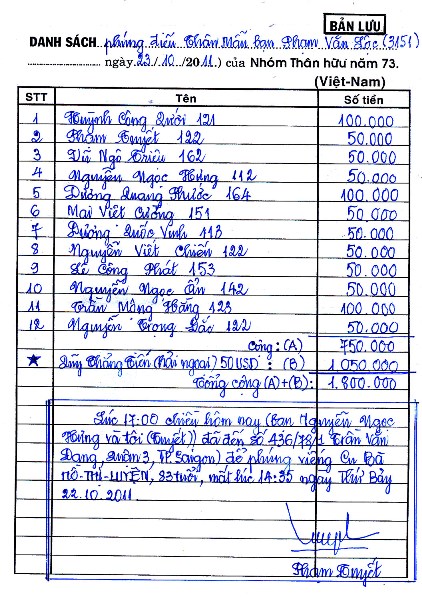 BẢN LƯU
DANH SÁCH phúng điếu Thân Mẫu bạn Phạm Văn Lộc (3151)
ngày (23/10/2011) của Nhóm Thân hữu năm 73.
(Việt-Nam)
STT Tên Số tiền
1 Huỳnh Công Qưới 121 100.000
2 Phạm Tuyết 122 50.000
3 Dữ Ngô Triều 162 50.000
4 Nguyễn Ngọc Hưng 112 50.000
5 Dương Quang Phước 164 100.000
6 Mai Viết Cường 151 50.000
7 Dương Quốc Vinh 113 50.000
8 Nguyễn Viết Chiến 122 50.000
9 Lê Công Phát 153 50.000
10 Nguyễn Ngọc Ẩn 142 50.000
11 Trần Mộng Hoàng 123 100.000
12 Nguyễn Trọng Đắc 122 50.000
Cộng: (A) 750.000
★ Quỹ Thăng Tiến (hải ngoại) 50 USD: (B) 1.050.000
Tổng cộng (A)+(B): 1.800.000
Lúc 17:00 chiều hôm nay (bạn Nguyễn Ngọc
Hưng và tôi (Tuyết)) đã đến Số 436/78/1 Trần Văn
Đang, Quận 3, TP. Saigon) để phúng viếng Cụ Bà
HỒ-THỊ-LUYỆN, 83 tuổi, mất lúc 14:35 ngày Thứ Bảy
22.10.2011.
Phạm Tuyết